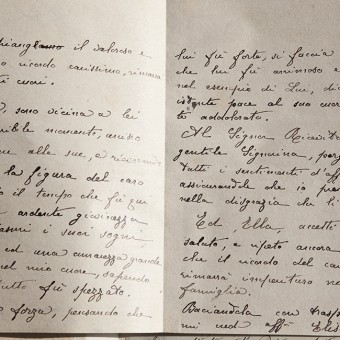 il valoroso e
ricordo carissimo, rimarrà
ti cuori.
, sono vicina a lei
ribile momento, unisco
alle sue, e
la figura del caro
il tempo che fu qui
ardente giovinezza
i suoi sogni
ed una amarezza grande
nel mio cuore, sapendo
tutto fu spezzato.
forza, pensando che
lui fu forte, si faccia
che lui fu animoso e
nel esempio di Lui, di
pace al suo cuor
addolorato.
Al Signor
gentile Signorina, porga
tutti i sentimenti d'aff
assicurandole che io pre
nella disgrazia che li
Ed, Ella, accetti
saluto, e ripeto ancora
che il ricordo del car
rimarrà imperituro ne
famiglia.
Baciandola con trasp
mi aff